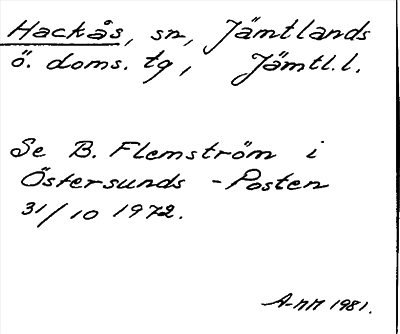 Hackås, sn, Jämtlands
ö. doms. tg, Jämtl.l.
Se B. Flemström i
Östersunds-Posten
31/10 1972.
A-MM 1981.